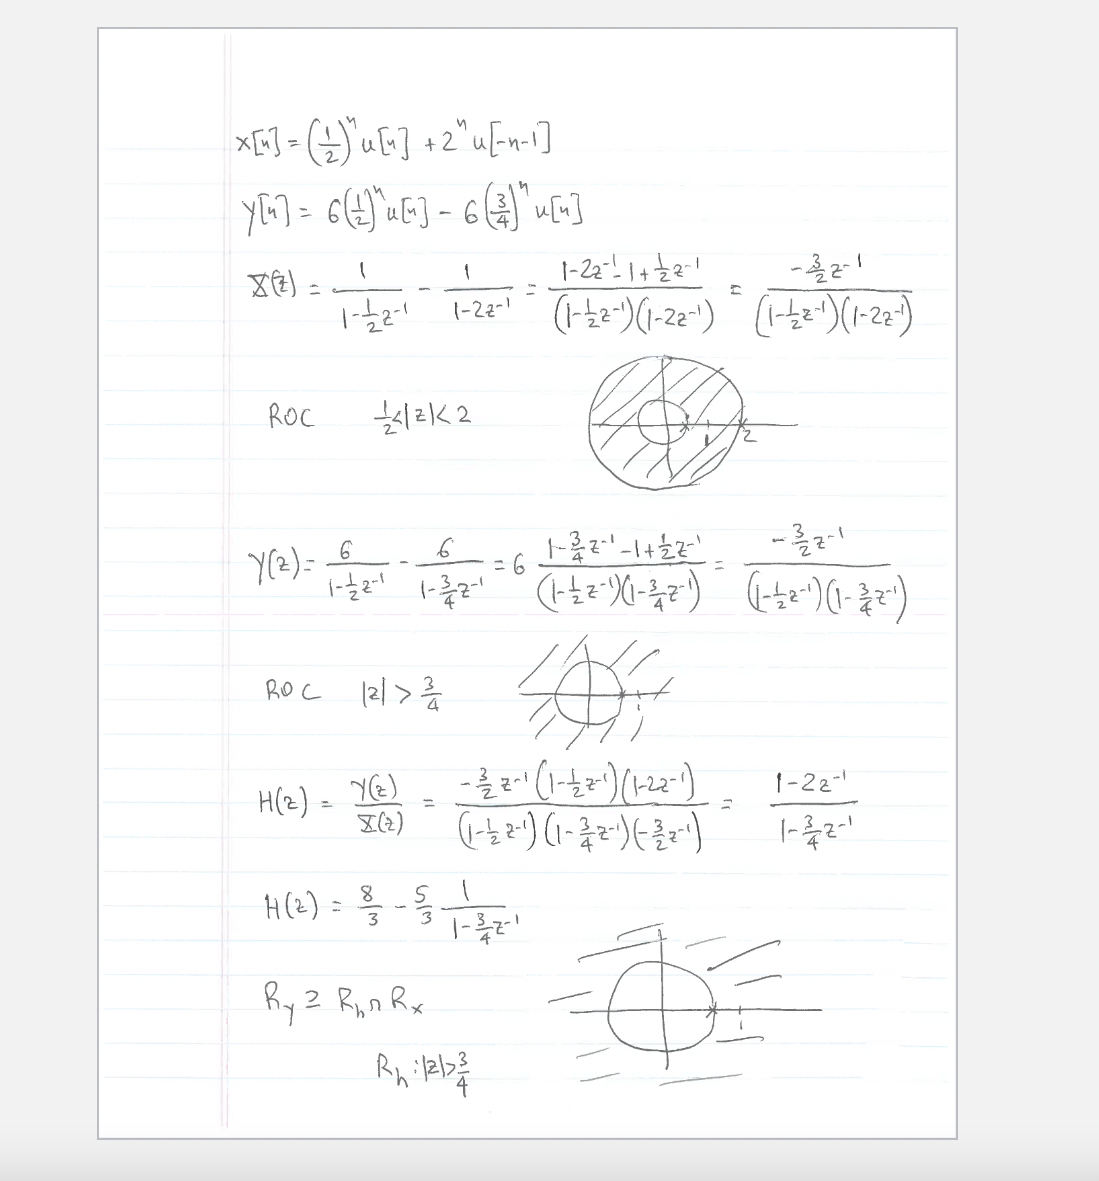 x[n] = (1/2)^n u[n] + 2^n u[-n-1]
y[n] = 6(1/2)^n u[n] - 6(3/4)^n u[n]
X(z) = 1/(1-1/2 z^-1) - 1/(1-2z^-1) = (1-2z^-1-1+1/2 z^-1)/((1-1/2 z^-1)(1-2z^-1)) = (-3/2 z^-1)/((1-1/2 z^-1)(1-2z^-1))
ROC 1/2<|z|<2
1 2
Y(z) = 6/(1-1/2 z^-1) - 6/(1-3/4 z^-1) = 6 (1-3/4 z^-1-1+1/2 z^-1)/((1-1/2 z^-1)(1-3/4 z^-1)) = (-3/2 z^-1)/((1-1/2 z^-1)(1-3/4 z^-1))
ROC |z| > 3/4
H(z) = Y(z)/X(z) = (-3/2 z^-1 (1-1/2 z^-1)(1-2z^-1))/((1-1/2 z^-1)(1-3/4 z^-1)(-3/2 z^-1)) = (1-2z^-1)/(1-3/4 z^-1)
H(z) = 8/3 - 5/3 1/(1-3/4 z^-1)
R_y ⊇ R_h ∩ R_x
1
R_h : |z|>3/4